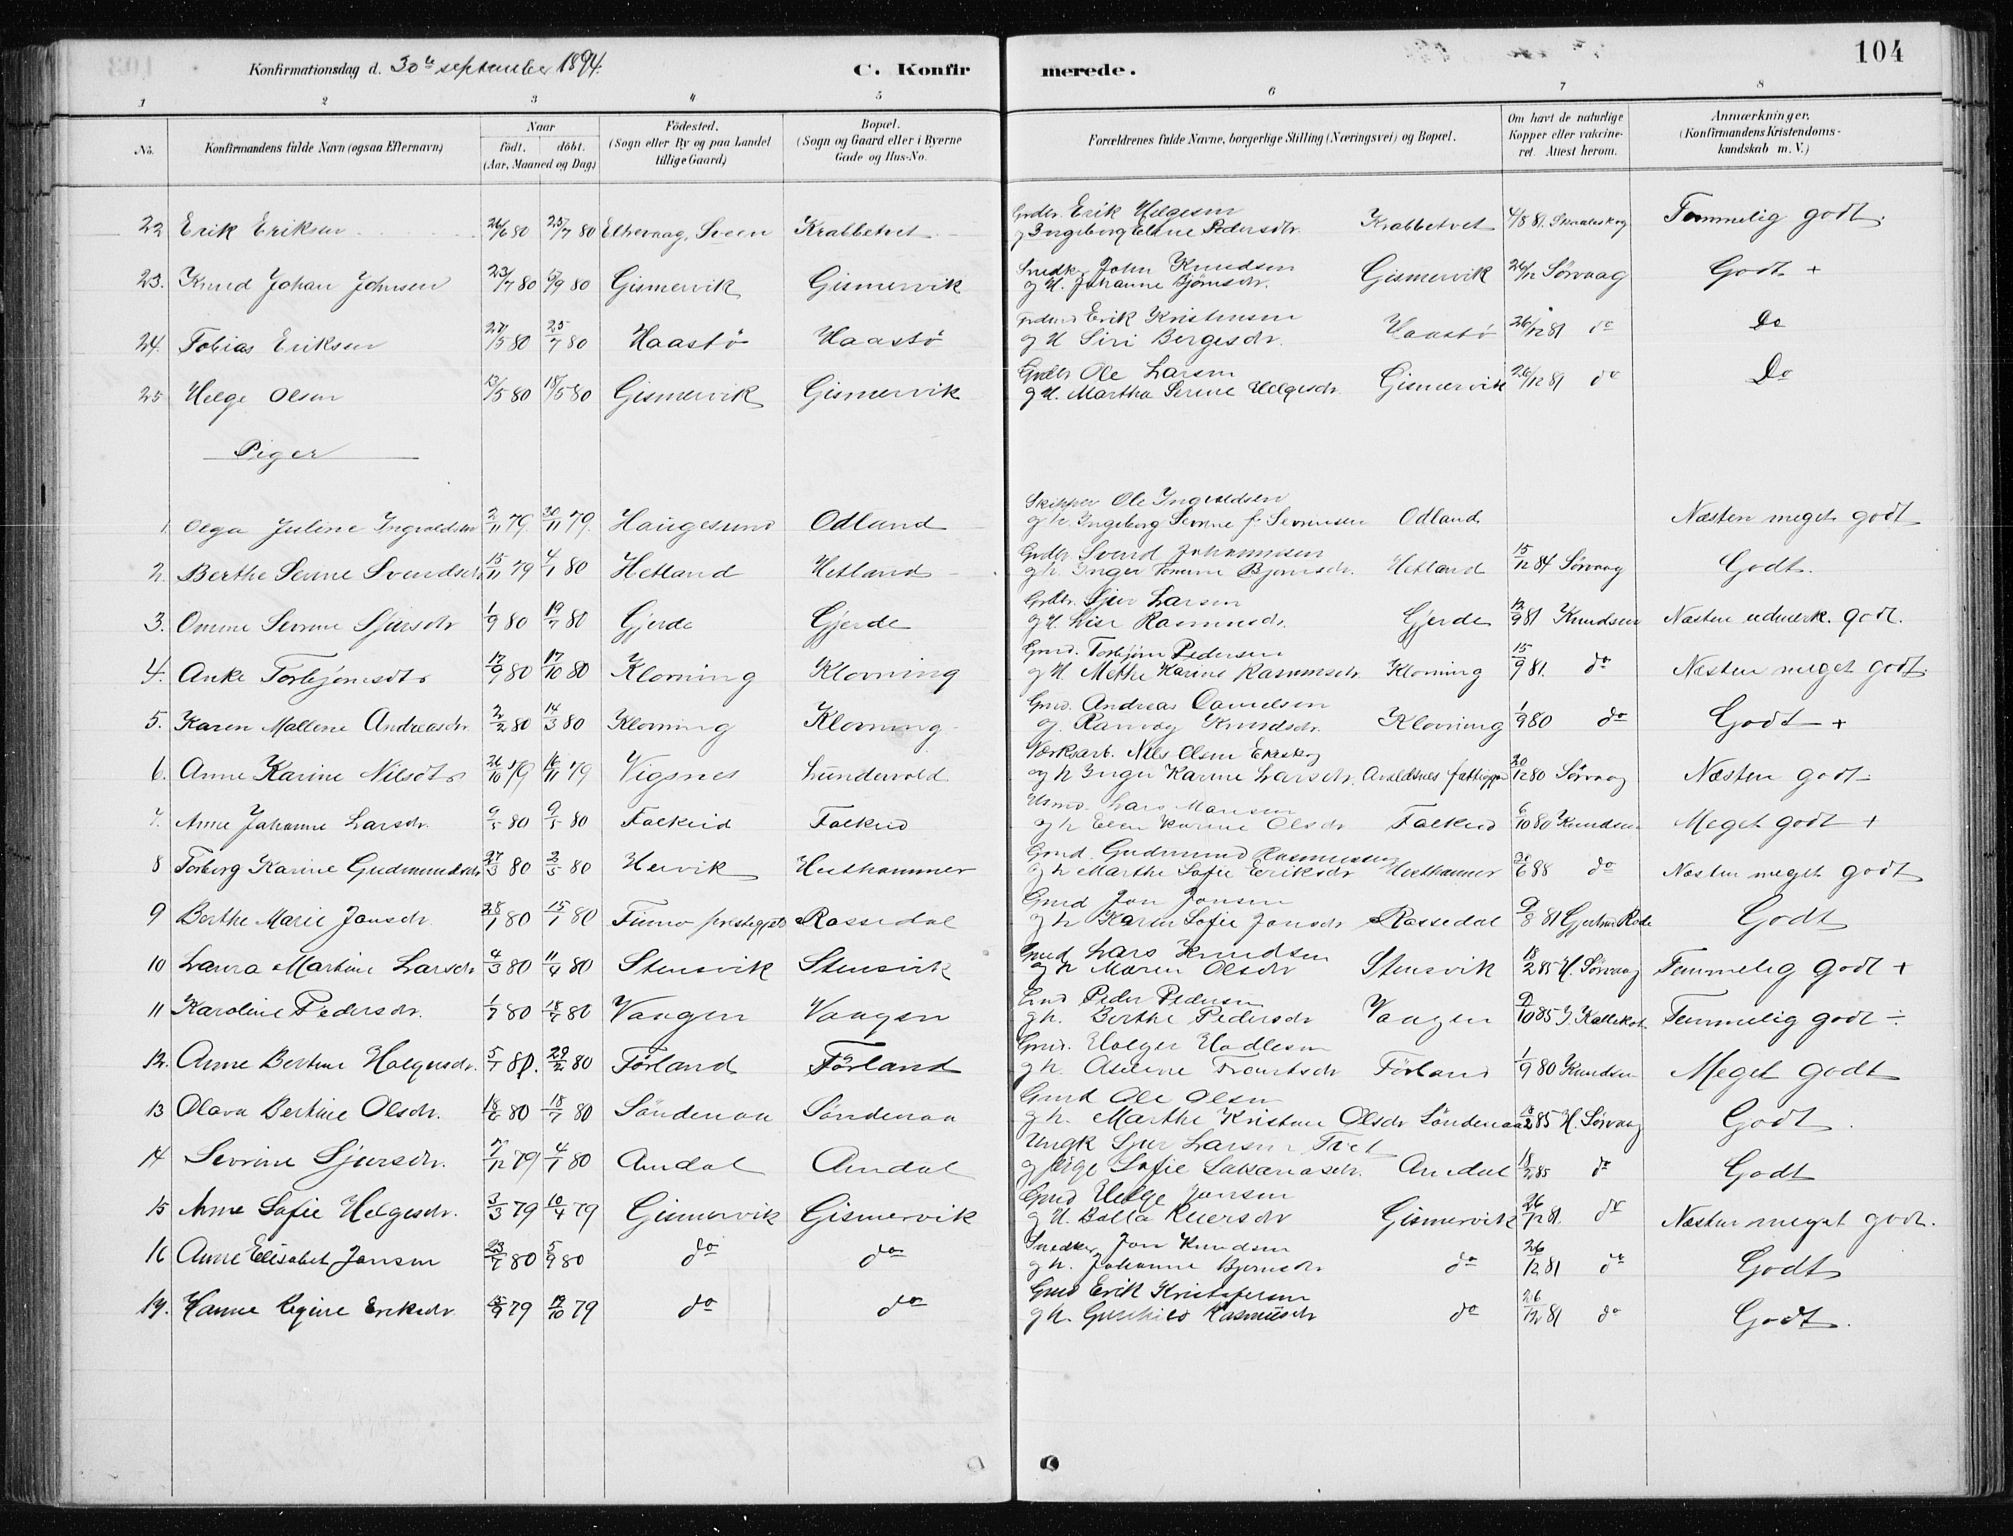 104
Konfirmationsdag d. 30te september 1894. C. Konfirmerede.
1 2 3 4 5 6 7 8
No. Konfirmandens fulde Navn (ogsaa Efternavn) Naar født. døbt. (Aar, Maaned og Dag) Fødested. (Sogn eller By og paa Landet tillige Gaard) Bopæl. (Sogn og Gaard eller i Byerne Gade og Hus-No. Forældrenes fulde Navne, borgerlige Stilling (Næringsvei) og Bopæl. Om havt de naturlige Kopper eller vakcineret. Attest herom. Anmærkninger. (Konfirmandens Kristendomskundskab m. V.)
22 Erik Eriksen 26/6 80 25/7 80 Sveen Krabbetvet Erik Helgesen
Pedersdtr. Krabbetvet 4/8 81 Temmelig godt.
23. Knud Johan Johnsen 23/7 80 5/9 80 Gismervik Gismervik Snedk. John Knudsen
og H. Johanne Bjørnsdr. Gismervik 26/12 Sørvaag Godt +
24. Tobias Eriksen 27/5 80 25/7 80 Haastø Haastø Erik Kristensen
og H Siri Børgesdr. Haastø 26/12 81 do Do
25 Helge Olsen 13/5 80 18/5 80 Gismervik Gismervik Ole Larsen
og H. Martha Serine Helgesdr. Gismervik 26/12 81 do Do
Piger
1. Olga Juline Ingvaldsen 2/11 79 30/11 79. Haugesund Odland Skipper Ole Ingvaldsen
og h. Ingeborg Serine f. Severinsen Odland Næsten meget godt
2. Berthe Serine Svendsdr 15/11 79 4/1 80 Hetland Hetland Svend Johannesen
og h. Inger Bjørnsdr. Hetland 15/12 84 Sørvaag Godt.
3. Sjursdr 1/9 80 19/7 80 Gjerde Gjerde Sjur Larsen
og H. Lise Rasmusdr. Gjerde 12/9 81 Knudsen Næsten udmærk. godt.
4. Anke Torbjørnsdtr 17/9 80 17/10 80 Klovning Klovning Gmd. Torbjørn Pedersen
og H Methe Karine Rasmusdr. Klovning 15/9 81. do Næsten meget godt.
5. Karen Mallene Andreasdr. 2/2 80 14/3 80 Klovning Klovning Gmd. Andreas Danielsen
og Ranvög Knudsdr. Klovning 1/9 80 do Godt +
6. Anne Karine Nilsdtr 26/10 79 16/11 79 Vigsnes Lundevold Værksarb. Nils Olsen
og h Inger Karine Larsdr. Avaldsnes 20/12 80 Sørvaag Næsten godt
7. Anne Johanne Larsdr. 9/5 80 Falkeid Falkeid Lars Monsen
og h Elen Karine Olsdr Falkeid 6/10 80 Knudsen Meget godt +
8 Torborg Karine Gudmundsdr 27/3 80 2/5 80 Hervik Hesthammer Gmd. Gudmund Rasmussen
og h Marthe Sofie Eriksdr Hesthammer 6 88 do Næsten meget godt
9 Berthe Marie Jonsdr. 28/1 80 80 Rossedal Gmd Jon Jonsen
og h Karen Sofie Jonsdr Rossedal 9/8 81 Gjertrud Rode Godt
10 Laura Martine Larsdr 4/3 80 11/4 80 Stensvik Stensvik Gmd Lars Knudsen
og h Maren Olsdr Stensvik 18/2 85 H. Sørvaag Temmelig godt +
11 Karoline Pedersdr. 1/7 80 18/7 80 Vaagen Vaagen Gmd Peder Pedersen
g h. Berthe Pedersdr Vaagen 9/10 85 Temmelig godt ÷
12. Anne Bertine Holgersdr. 5/1 80. 29/2 80 Førland Førland Gmd. Holger Hodlesen
g h. Førland 1/9 80 Knudsen Meget godt
13 Olava Bertine Olsdr. 18/6 80 18/7 80 Söndenaa Söndenaa Gmd Ole Olsen
g h. Marthe Kristine Olsdr Söndenaa 18/2 85 H. Sørvaag Godt.
14 Sevrine Sjursdr. 7/12 79 4/1 80 Amdal Amdal Ungk Sjur Larsen
og Pige Sofie Amdal 18/2 85 do Godt
15 Anne Sofie Helgesdr. 3/3 79 10/4 79 Gismervik Gismervik Gmd Helge Jonsen
g H. Gismervik 26/12 81. do Næsten meget godt.
16 Anne Elisabet Jonsen 23/7 80 5/9 80 do do Snedker Jon Knudsen
g h. Johanne Bjørnsdr do 26/12 81 do Godt
17. Hanne Regine Eriksdr. 79 79 do do Gmd Erik Kristofersen
g h. Rasmusdr do 26/12 81 do Godt.